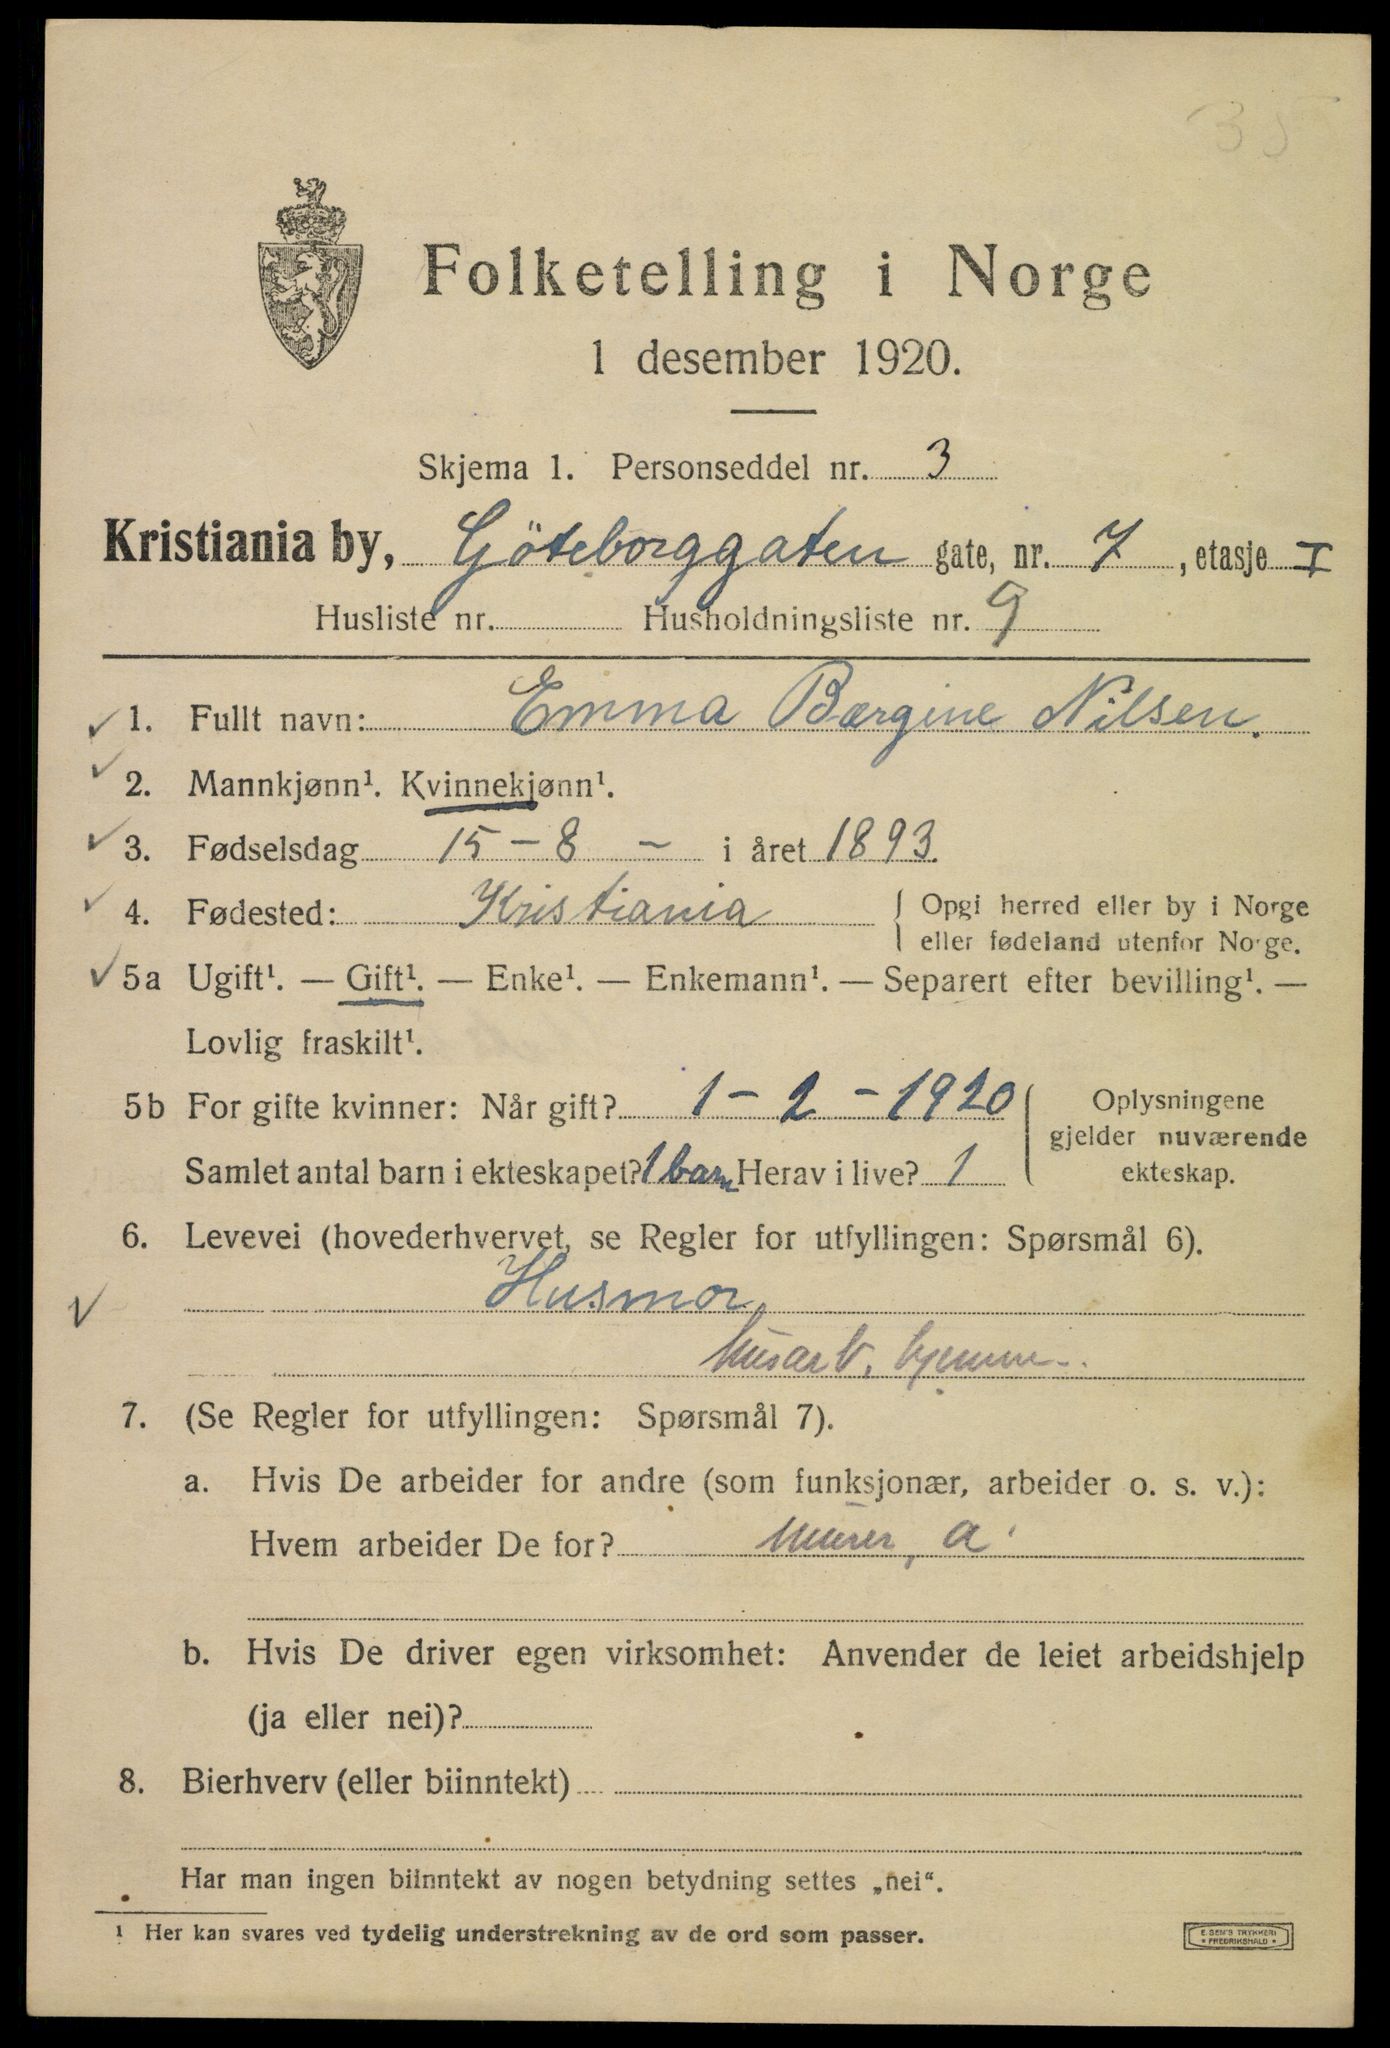 35
Folketelling i Norge
1 desember 1920.
Skjema 1. Personseddel nr. 3
Kristiania by, Göteborggaten gate, nr. 7, etasje I
Husliste nr. Husholdningsliste nr. 9
1. Fullt navn: Emma Bærgine Nilsen.
2. Mannkjønn¹. Kvinnekjønn¹.
3. Fødselsdag 15 - 8 - i året 1893.
4. Fødested: Kristiania { Opgi herred eller by i Norge
eller fødeland utenfor Norge.
5a Ugift¹. — Gift¹. — Enke¹. — Enkemann¹. — Separert efter bevilling¹. —
Lovlig fraskilt¹.
5b For gifte kvinner: Når gift? 1 - 2 - 1920
Samlet antal barn i ekteskapet? 1 barn Herav i live? 1
Oplysningene
gjelder nuværende
ekteskap.
6. Levevei (hovederhvervet, se Regler for utfyllingen: Spørsmål 6).
Husmor,
husarb. hjemme.
7. (Se Regler for utfyllingen: Spørsmål 7).
a. Hvis De arbeider for andre (som funksjonær, arbeider o. s. v.):
Hvem arbeider De for? murer, a
b. Hvis De driver egen virksomhet: Anvender de leiet arbeidshjelp
(ja eller nei)?
8. Bierhverv (eller biinntekt)
Har man ingen biinntekt av nogen betydning settes „nei“.
¹ Her kan svares ved tydelig understrekning av de ord som passer.
E. SEM'S TRYKKERI
* FREDRIKSHALD *